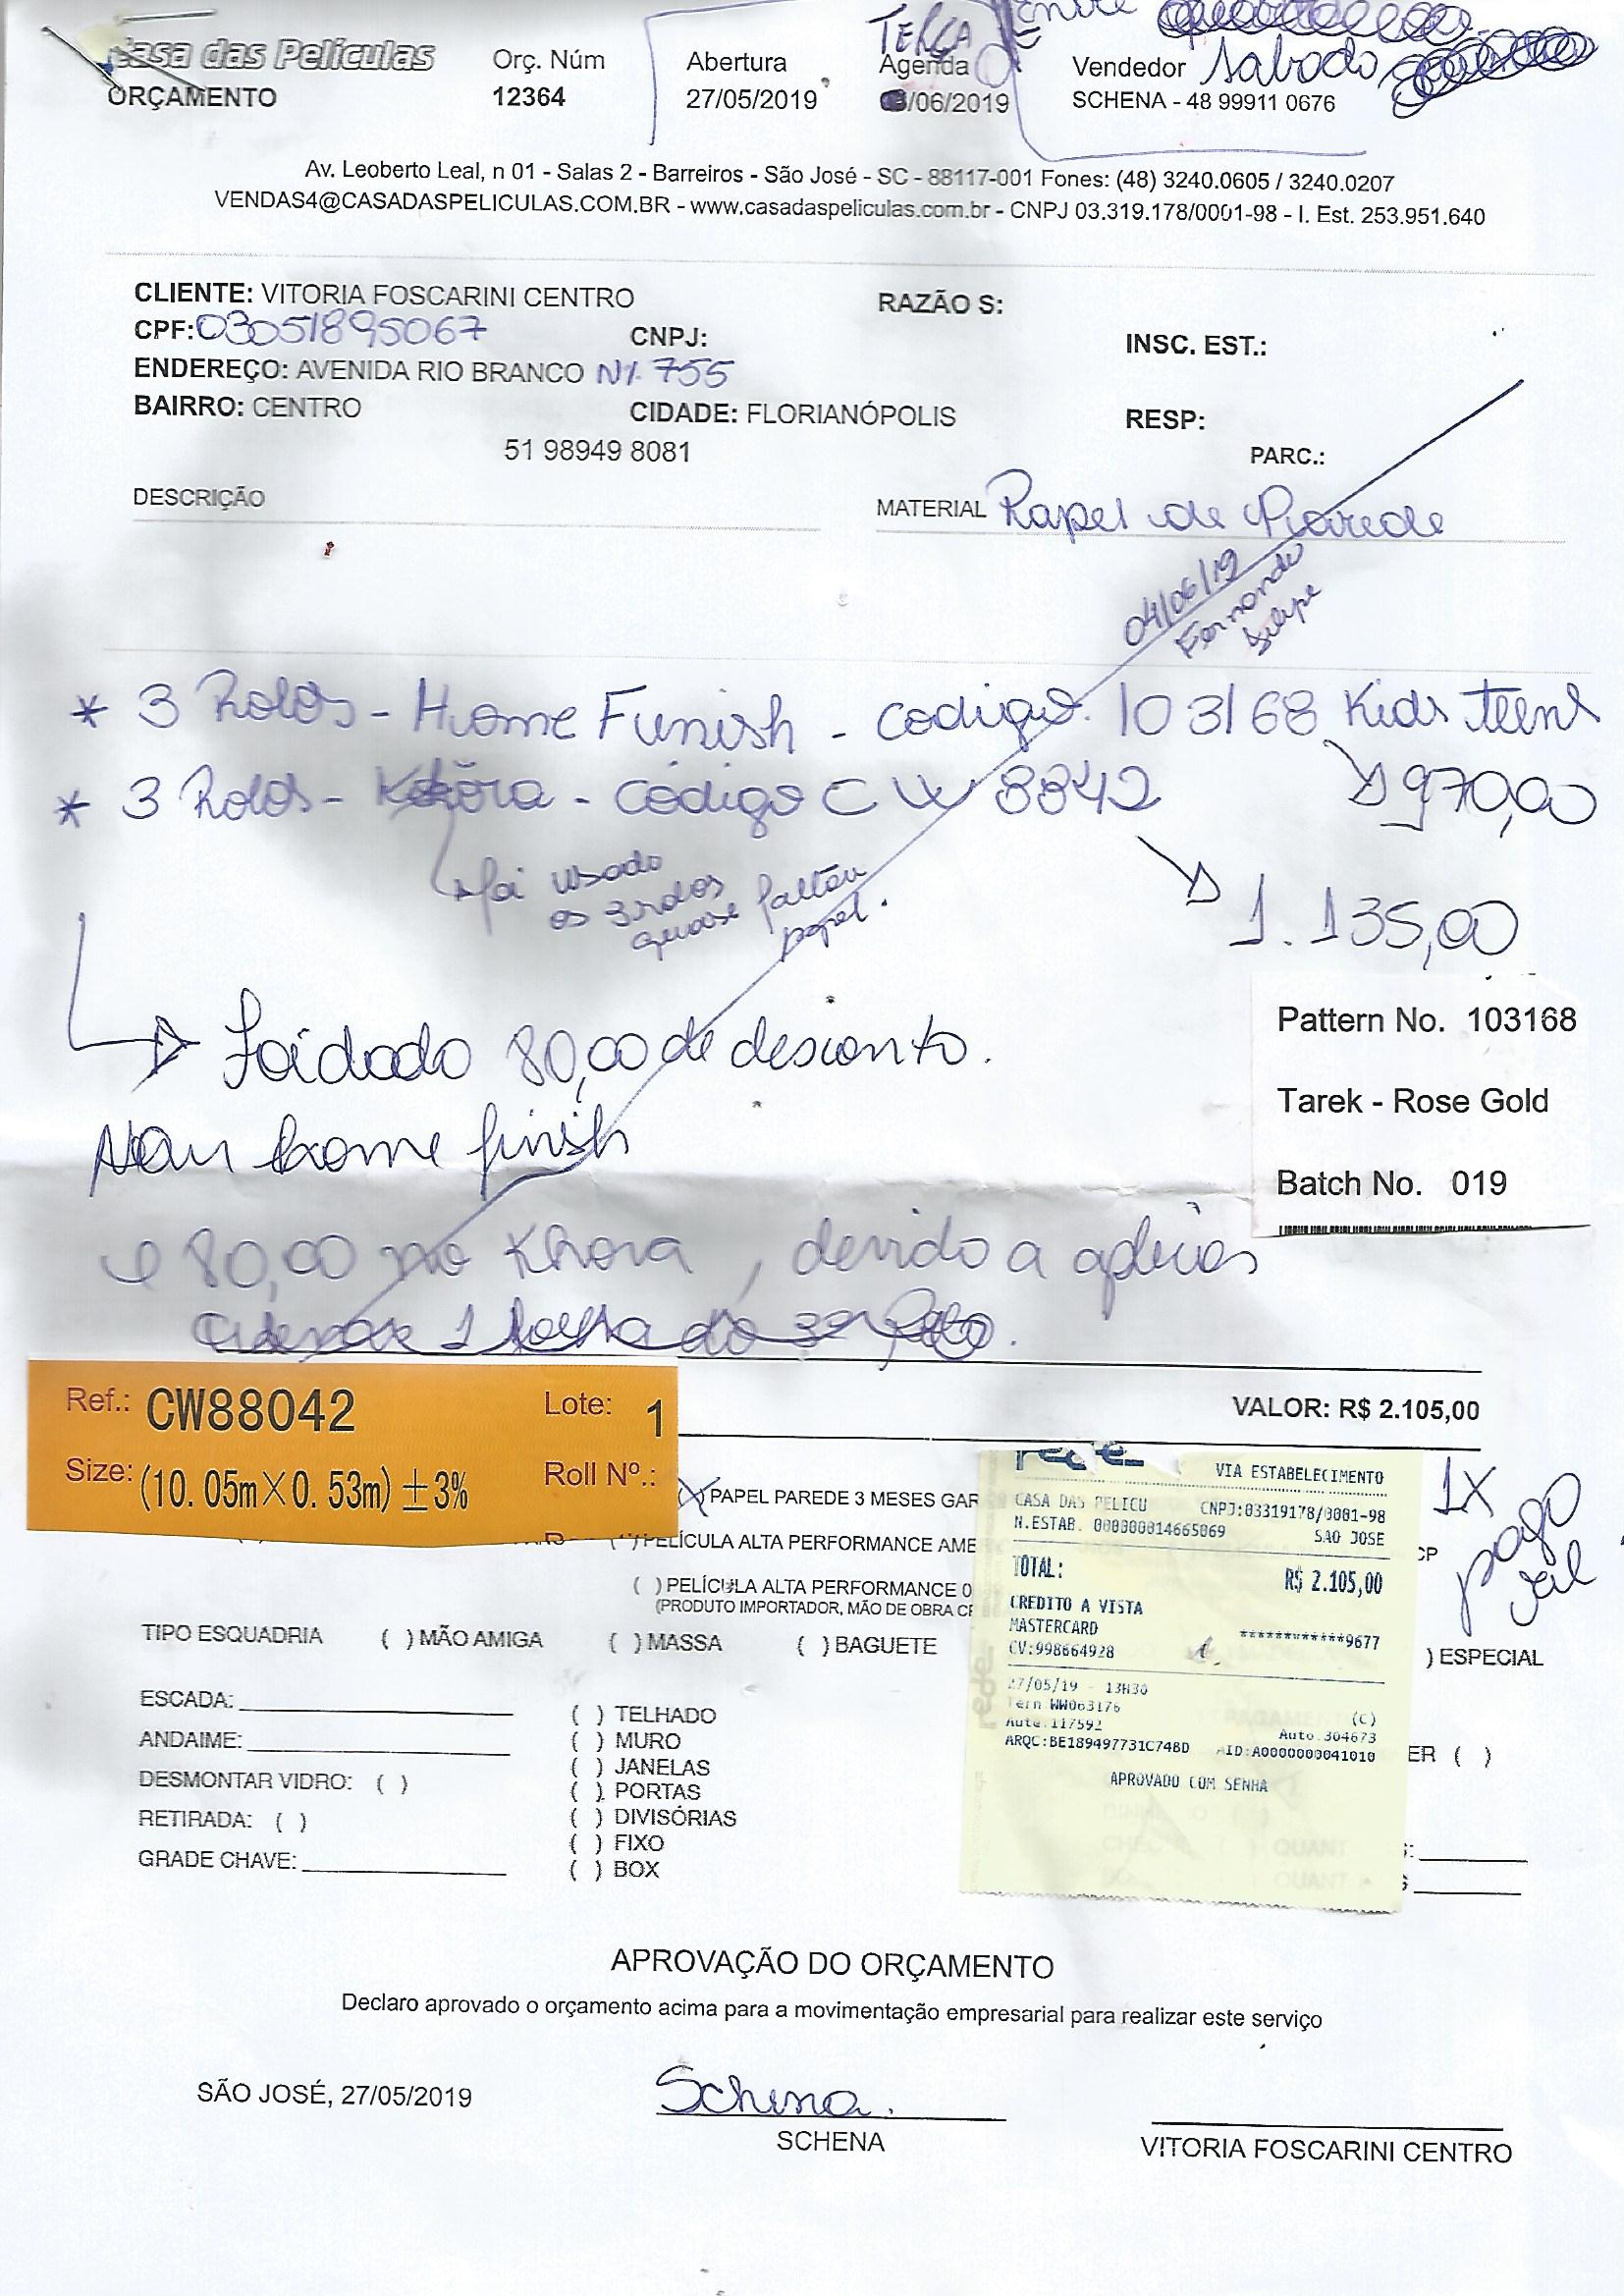 TERÇA
Casa das Películas
ORÇAMENTO
Orç. Núm
12364
Abertura
27/05/2019
Agenda
/06/2019
Vendedor Sabado
SCHENA - 48 99911 0676
Av. Leoberto Leal, n 01 - Salas 2 - Barreiros - São José - SC - 88117-001 Fones: (48) 3240.0605 / 3240.0207
VENDAS4@CASADASPELICULAS.COM.BR - www.casadaspeliculas.com.br - CNPJ 03.319.178/0001-98 - I. Est. 253.951.640
CLIENTE: VITORIA FOSCARINI CENTRO
RAZÃO S:
CPF: 03051895067
CNPJ:
INSC. EST.:
ENDEREÇO: AVENIDA RIO BRANCO Nº 755
BAIRRO: CENTRO
CIDADE: FLORIANÓPOLIS
RESP:
51 98949 8081
PARC.:
DESCRIÇÃO
MATERIAL Papel de Parede
04/06/19
Fernando
Felipe
* 3 Rolos - Home Funish - codigo. 103168 Kids teens
970,00
* 3 Rolos - Kohora - Código CW 8842
1.135,00
foi usado
os 3 rolos
quase faltou
papel.
Foi dado 80,00 de desconto.
home finish
e 80,00 no Khora, devido a
1 folha do 3º Rolo.
Pattern No. 103168
Tarek - Rose Gold
Batch No. 019
Ref.: CW88042 Lote: 1
Size: (10. 05m×0. 53m) ±3% Roll Nº.:
VALOR: R$ 2.105,00
(X) PAPEL PAREDE 3 MESES GAR
( ) PELÍCULA ALTA PERFORMANCE AME
CP
( ) PELÍCULA ALTA PERFORMANCE 0
(PRODUTO IMPORTADOR, MÃO DE OBRA CE
TIPO ESQUADRIA ( ) MÃO AMIGA ( ) MASSA ( ) BAGUETE
) ESPECIAL
1X
pago
rede
VIA ESTABELECIMENTO
CASA DAS PELICU CNPJ:03319178/0001-98
N.ESTAB. 000000014665069 SAO JOSE
TOTAL: R$ 2.105,00
CREDITO A VISTA
MASTERCARD ************9677
CV:998664928
27/05/19 - 13H30
Term.WW063176 (C)
Auto.117592 Auto.304673
ARQC:BE189497731C74BD AID:A0000000041010
APROVADO COM SENHA
ESCADA:
ANDAIME:
DESMONTAR VIDRO: ( )
RETIRADA: ( )
GRADE CHAVE:
( ) TELHADO
( ) MURO
( ) JANELAS
( ) PORTAS
( ) DIVISÓRIAS
( ) FIXO
( ) BOX
ER ( )
QUANT
QUANT
APROVAÇÃO DO ORÇAMENTO
Declaro aprovado o orçamento acima para a movimentação empresarial para realizar este serviço
SÃO JOSÉ, 27/05/2019
Schena.
SCHENA
VITORIA FOSCARINI CENTRO